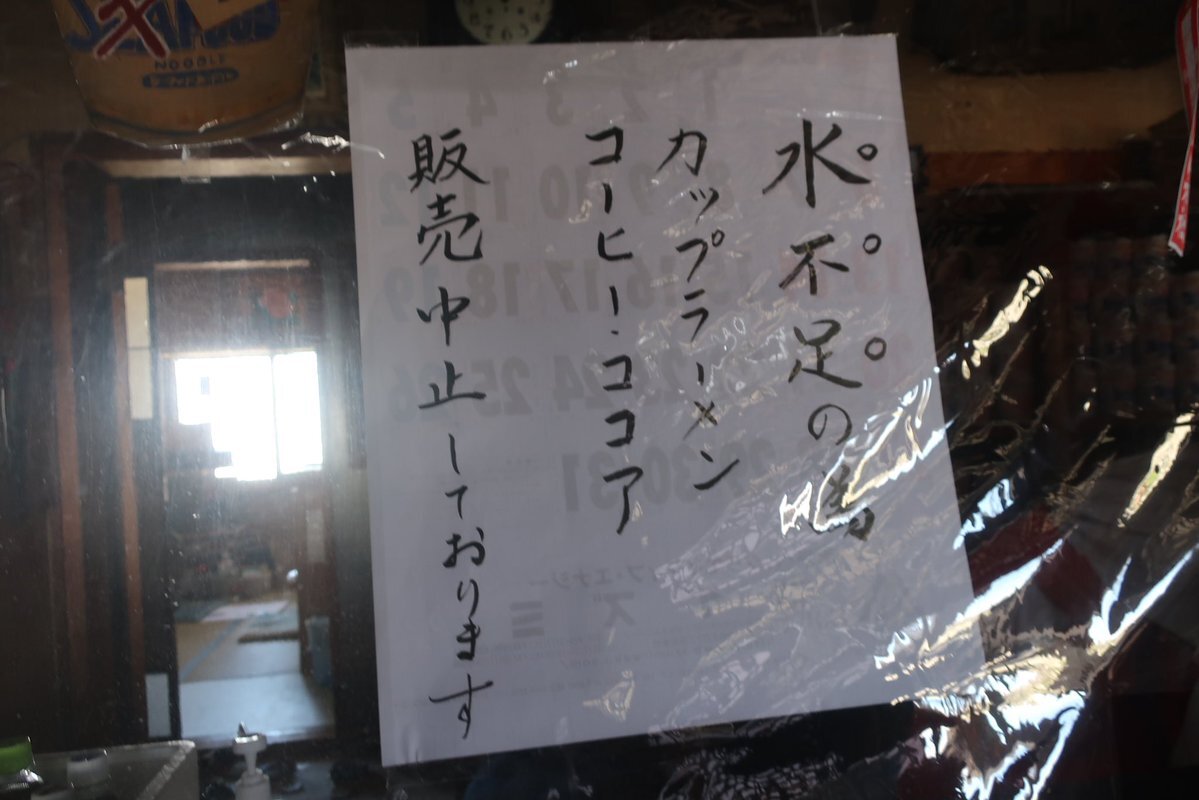 水不足の為
カップラーメン
コーヒー・ココア
販売中止しております
NOODLE